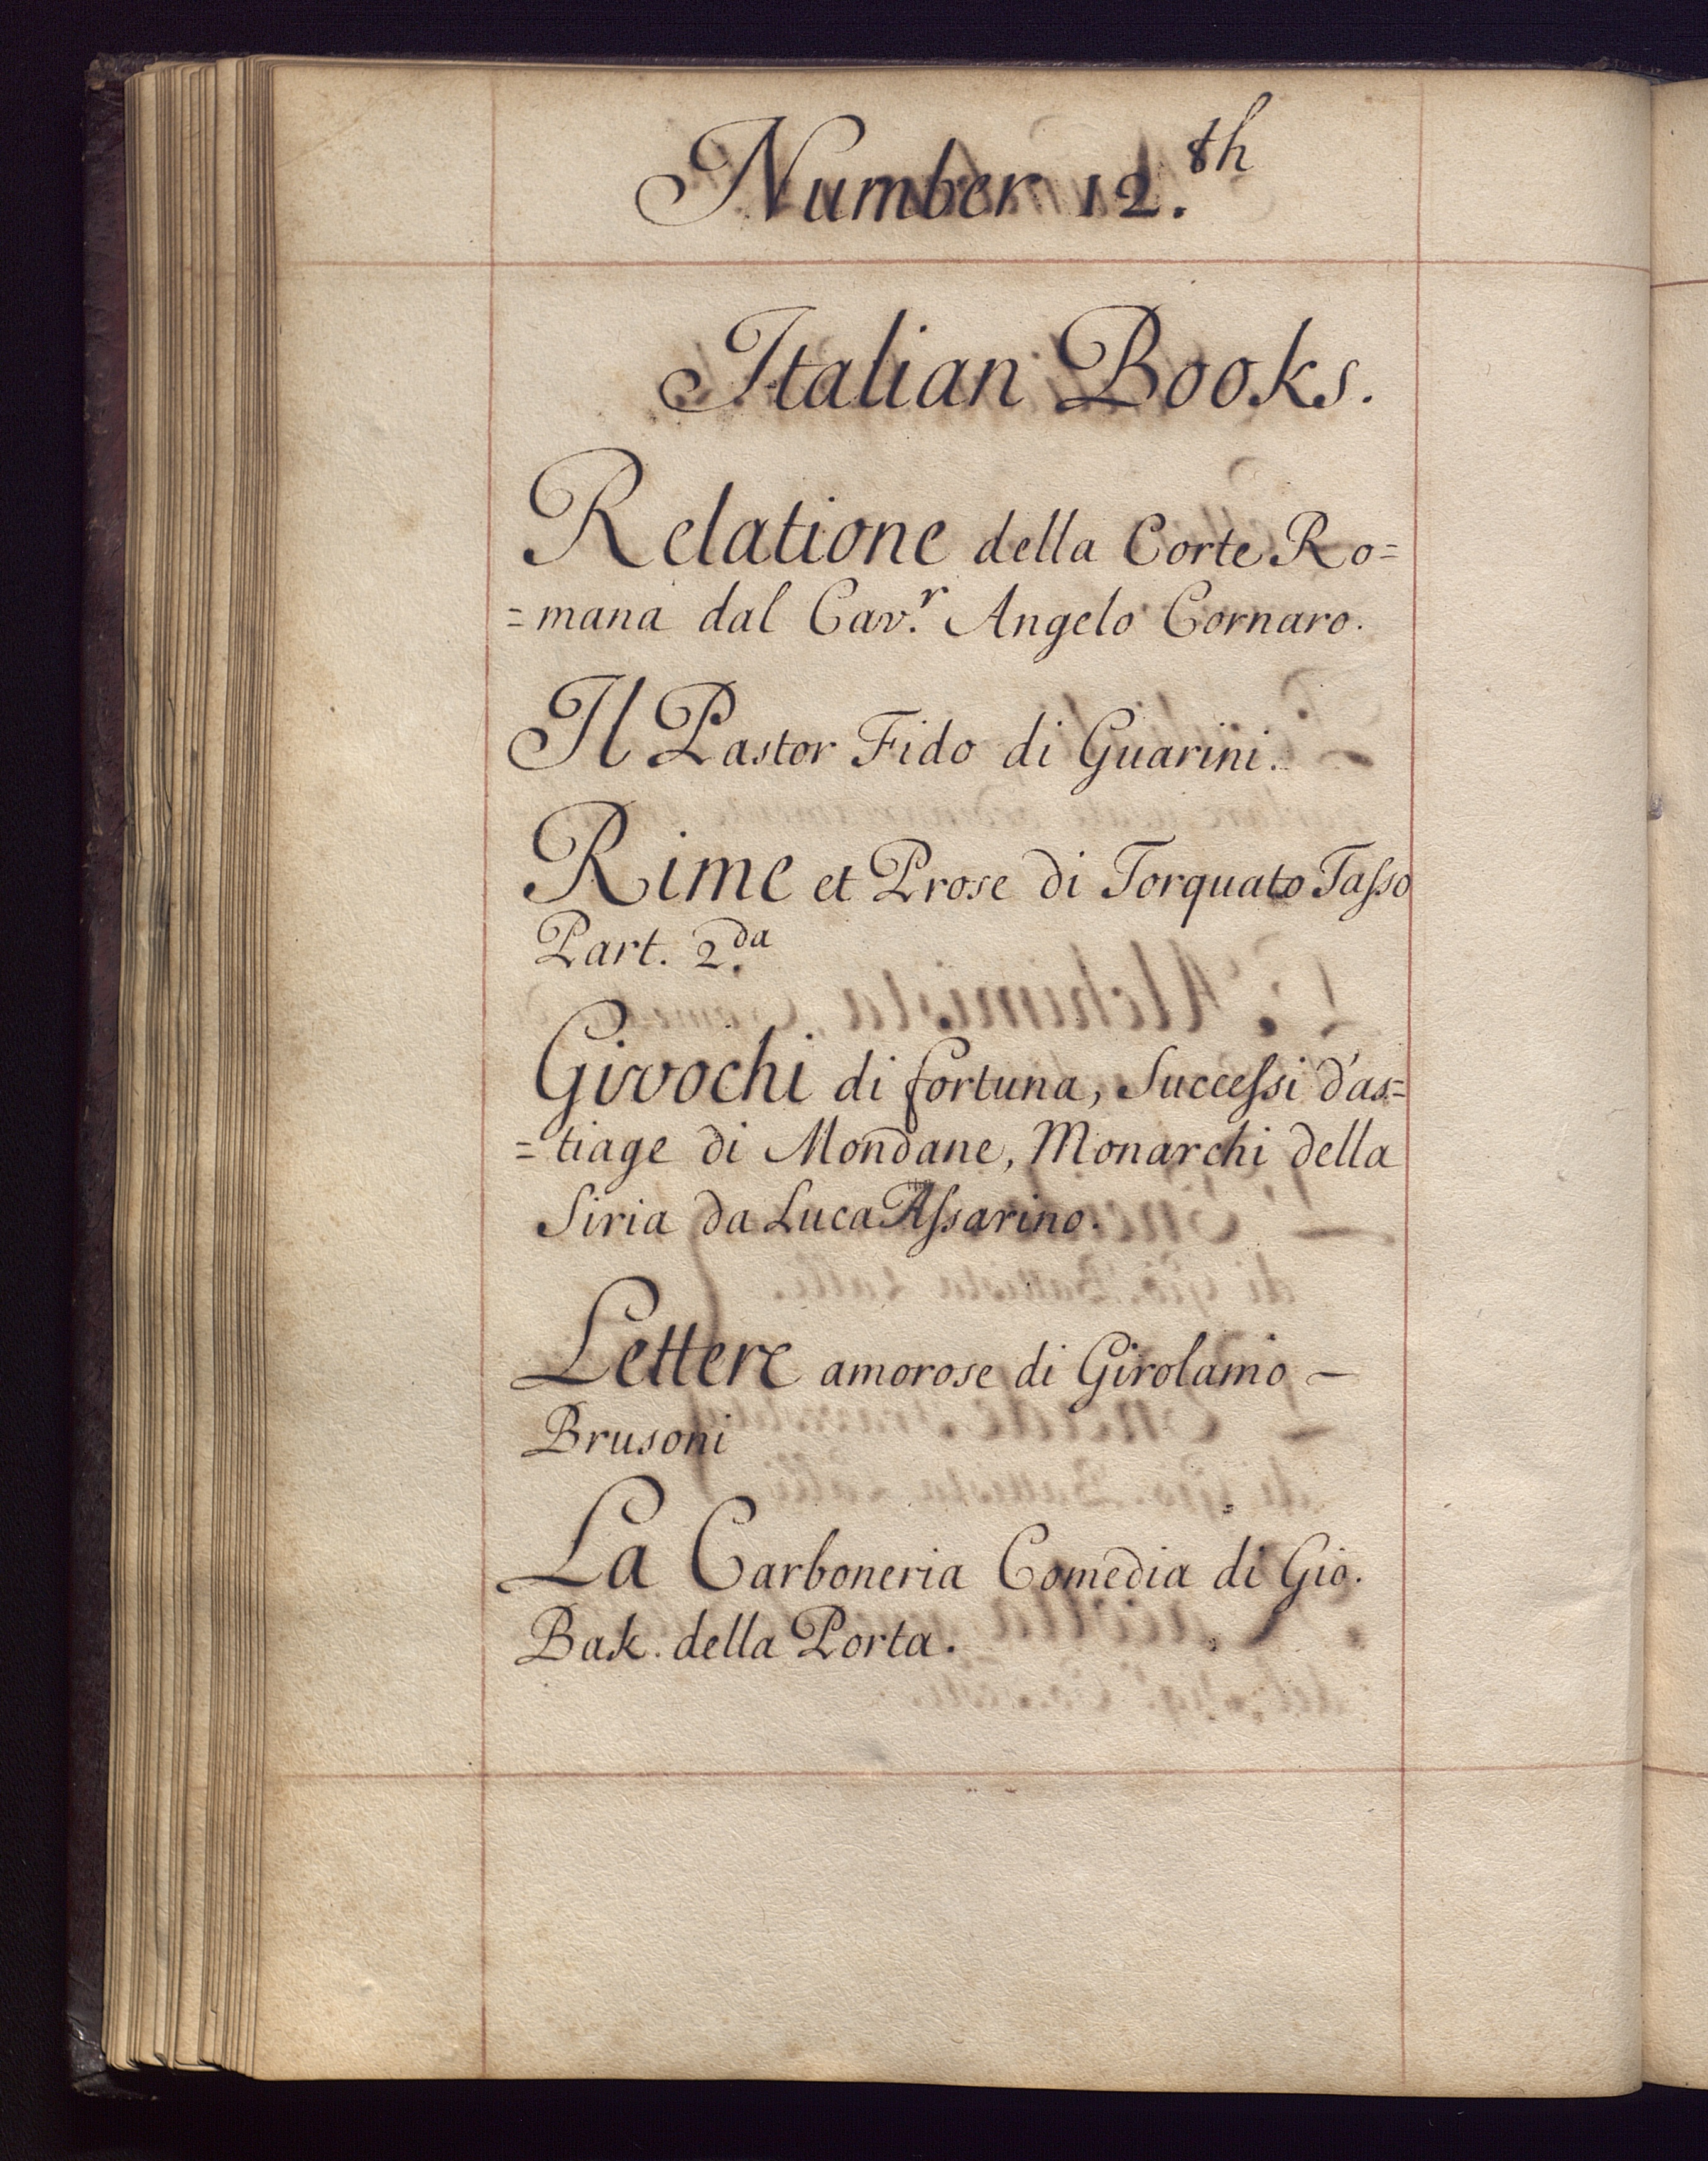 Number 12.th
Italian Books.
Relatione della Corte Ro=
=mana dal Cav.r Angelo Cornaro.
Il Pastor Fido di Guarini.
Rime et Prose di Torquato Taſso
Part. 2.da
Givochi di fortuna, Succeſsi d'as=
=tiage di Mondane, Monarchi della
Siria da Luca Aſsarino.
Lettere amorose di Girolamo –
Brusoni
La Carboneria Comedia di Gio.
Bak. della Porta.